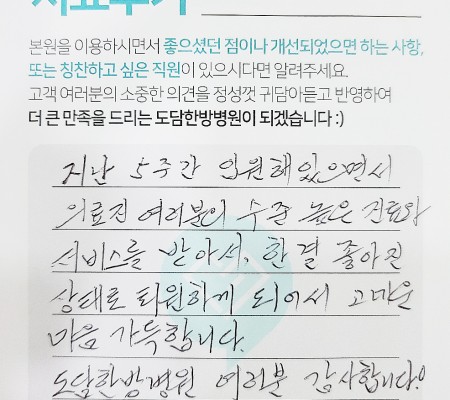 치료후기
본원을 이용하시면서 좋으셨던 점이나 개선되었으면 하는 사항,
또는 칭찬하고 싶은 직원이 있으시다면 알려주세요.
고객 여러분의 소중한 의견을 정성껏 귀담아듣고 반영하여
더 큰 만족을 드리는 도담한방병원이 되겠습니다 :)
지난 5주간 입원해있으면서
의료진 여러분의 수준 높은 진료와
서비스를 받아서, 한결 좋아진
상태로 퇴원하게 되어서 고마운
마음 가득합니다.
도담한방병원 여러분 감사합니다!